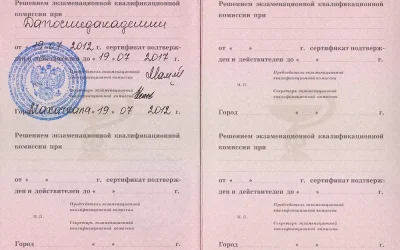 Решением экзаменационной квалификационной
комиссии при
Дагосмедакадемии
от « 19 » 07 2012 г. сертификат подтверж-
ден и действителен до « 19 » 07 2017 г.
Председатель экзаменационной
квалификационной комиссии
Секретарь экзаменационной
квалификационной комиссии
Город Махачкала « 19 » 07 2012 г.
Решением экзаменационной квалификационной
комиссии при
от « » г. сертификат подтверж-
ден и действителен до « » г.
Председатель экзаменационной
квалификационной комиссии
М.П.
Секретарь экзаменационной
квалификационной комиссии
Город « » г.
Решением экзаменационной квалификационной
комиссии при
от « » г. сертификат подтверж-
ден и действителен до « » г.
Председатель экзаменационной
квалификационной комиссии
М.П.
Секретарь экзаменационной
квалификационной комиссии
Город « » г.
Решением экзаменационной квалификационной
комиссии при
от « » г. сертификат подтверж-
ден и действителен до « » г.
Председатель экзаменационной
квалификационной комиссии
М.П.
Секретарь экзаменационной
квалификационной комиссии
Город « » г.